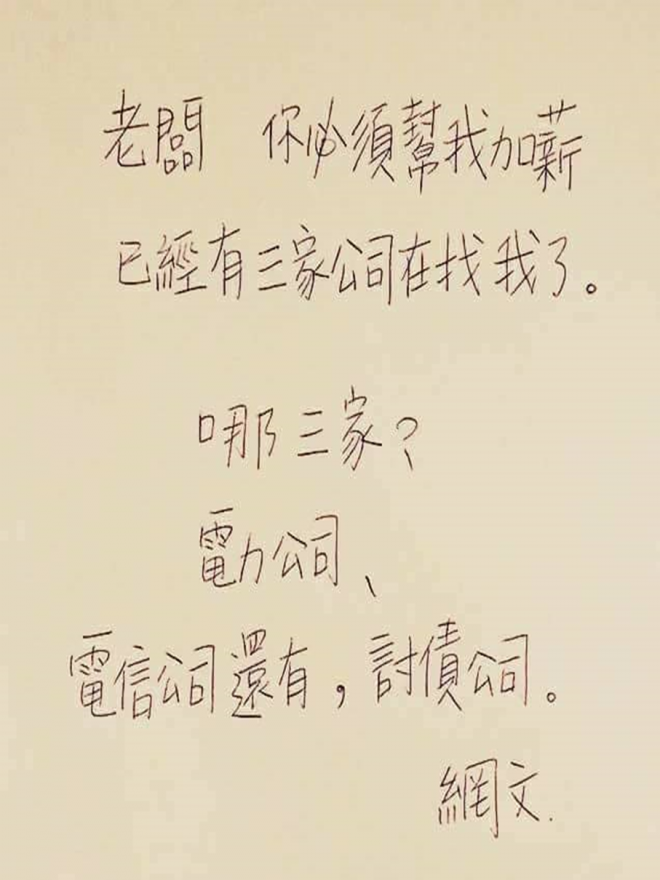 老闆　你必須幫我加薪
已經有三家公司在找我了。
哪三家？
電力公司、
電信公司還有，討債公司。
網文.